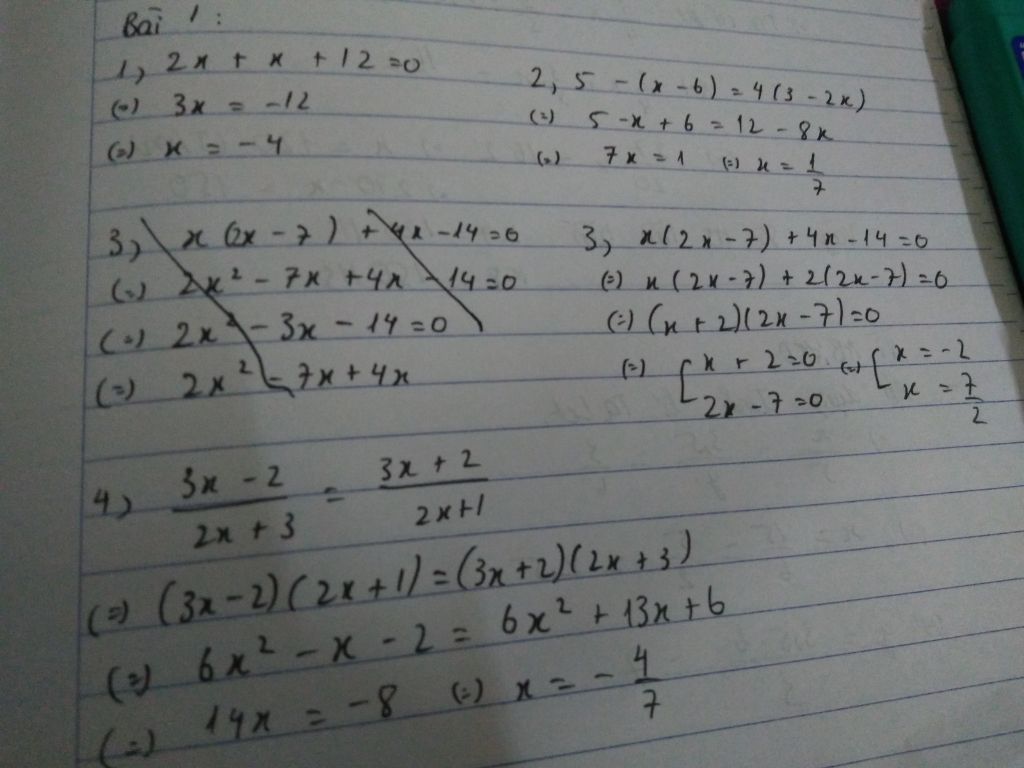 Bài 1:
1, 2x + x + 12 = 0
(=) 3x = -12
(=) x = -4
2, 5 - (x - 6) = 4(3 - 2x)
(=) 5 - x + 6 = 12 - 8x
(=) 7x = 1 (=) x = 1/7
3, x(2x - 7) + 4x - 14 = 0
(=) 2x² - 7x + 4x - 14 = 0
(=) 2x² - 3x - 14 = 0
(=) 2x² - 7x + 4x
3, x(2x - 7) + 4x - 14 = 0
(=) x(2x - 7) + 2(2x - 7) = 0
(=) (x + 2)(2x - 7) = 0
(=) [ x + 2 = 0 (=) [ x = -2
2x - 7 = 0 x = 7/2
4) (3x - 2)/(2x + 3) = (3x + 2)/(2x + 1)
(=) (3x - 2)(2x + 1) = (3x + 2)(2x + 3)
(=) 6x² - x - 2 = 6x² + 13x + 6
(=) 14x = -8 (=) x = - 4/7